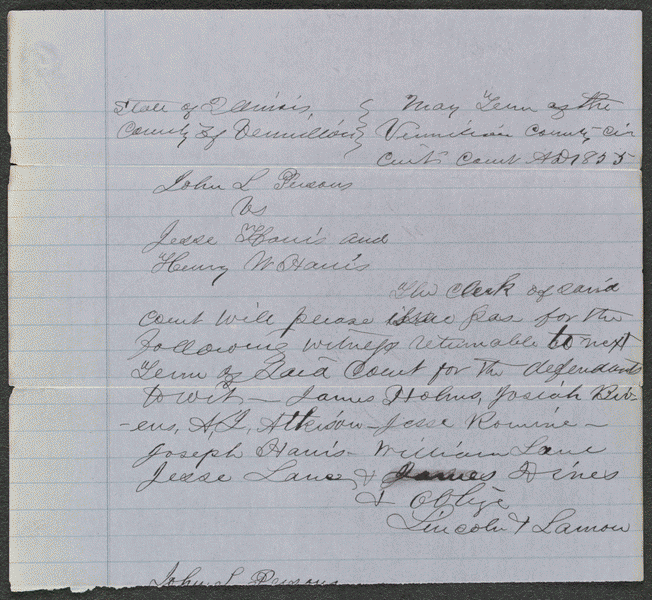 State of Illinois } May Term of the
County of Vermillion } Vermilion County Cir
cuit Court AD 1855
John L Persons
Vs
Jesse Harris and
Henry W Harris
The Clerk of Said
Court will please issue for the
following witness returnable to next
Term of Said Court for the defendants
to wit — James Holms, Josiah Biv-
-ens, A, J, Atkison — Jesse Romine —
Joseph Harris — William Lane
Jesse Lane & James Dines
& Oblige
Lincoln & Lamon
John L Persons